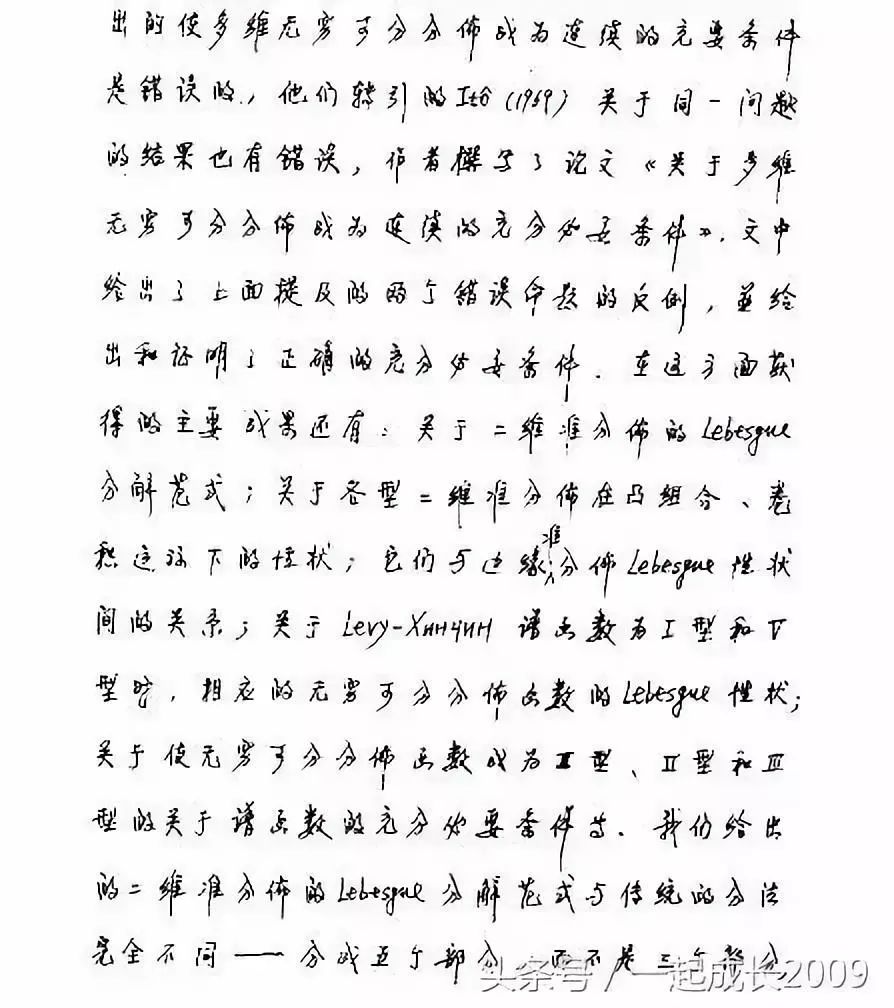 出的使多维无穷可分分佈成为连续的充要条件
是错误的，他们转引的Itô (1969) 关于同一问题
的结果也有错误，作者撰写了论文《关于多维
无穷可分分佈成为连续的充分必要条件》，文中
给出了上面提及的两个错误命题的反例，並给
出和证明了正确的充分必要条件．在这方面获
得的主要成果还有：关于二维准分佈的Lebesgue
分解范式；关于各型二维准分佈在凸组合、卷
积运祘下的性状；它们与边缘准分佈Lebesgue性状
间的关系；关于Levy-Хинчин 谱函数为Ⅰ型和Ⅴ
型时，相应的无穷可分分佈函数的Lebesgue性状；
关于使无穷可分分佈函数成为 型、Ⅱ型和Ⅲ
型的关于谱函数的充分必要条件等．我们给出
的二维准分佈的Lebesgue分解范式与传统的分法
完全不同——分成五个部分，而不是三个部分
头条号／一起成长2009